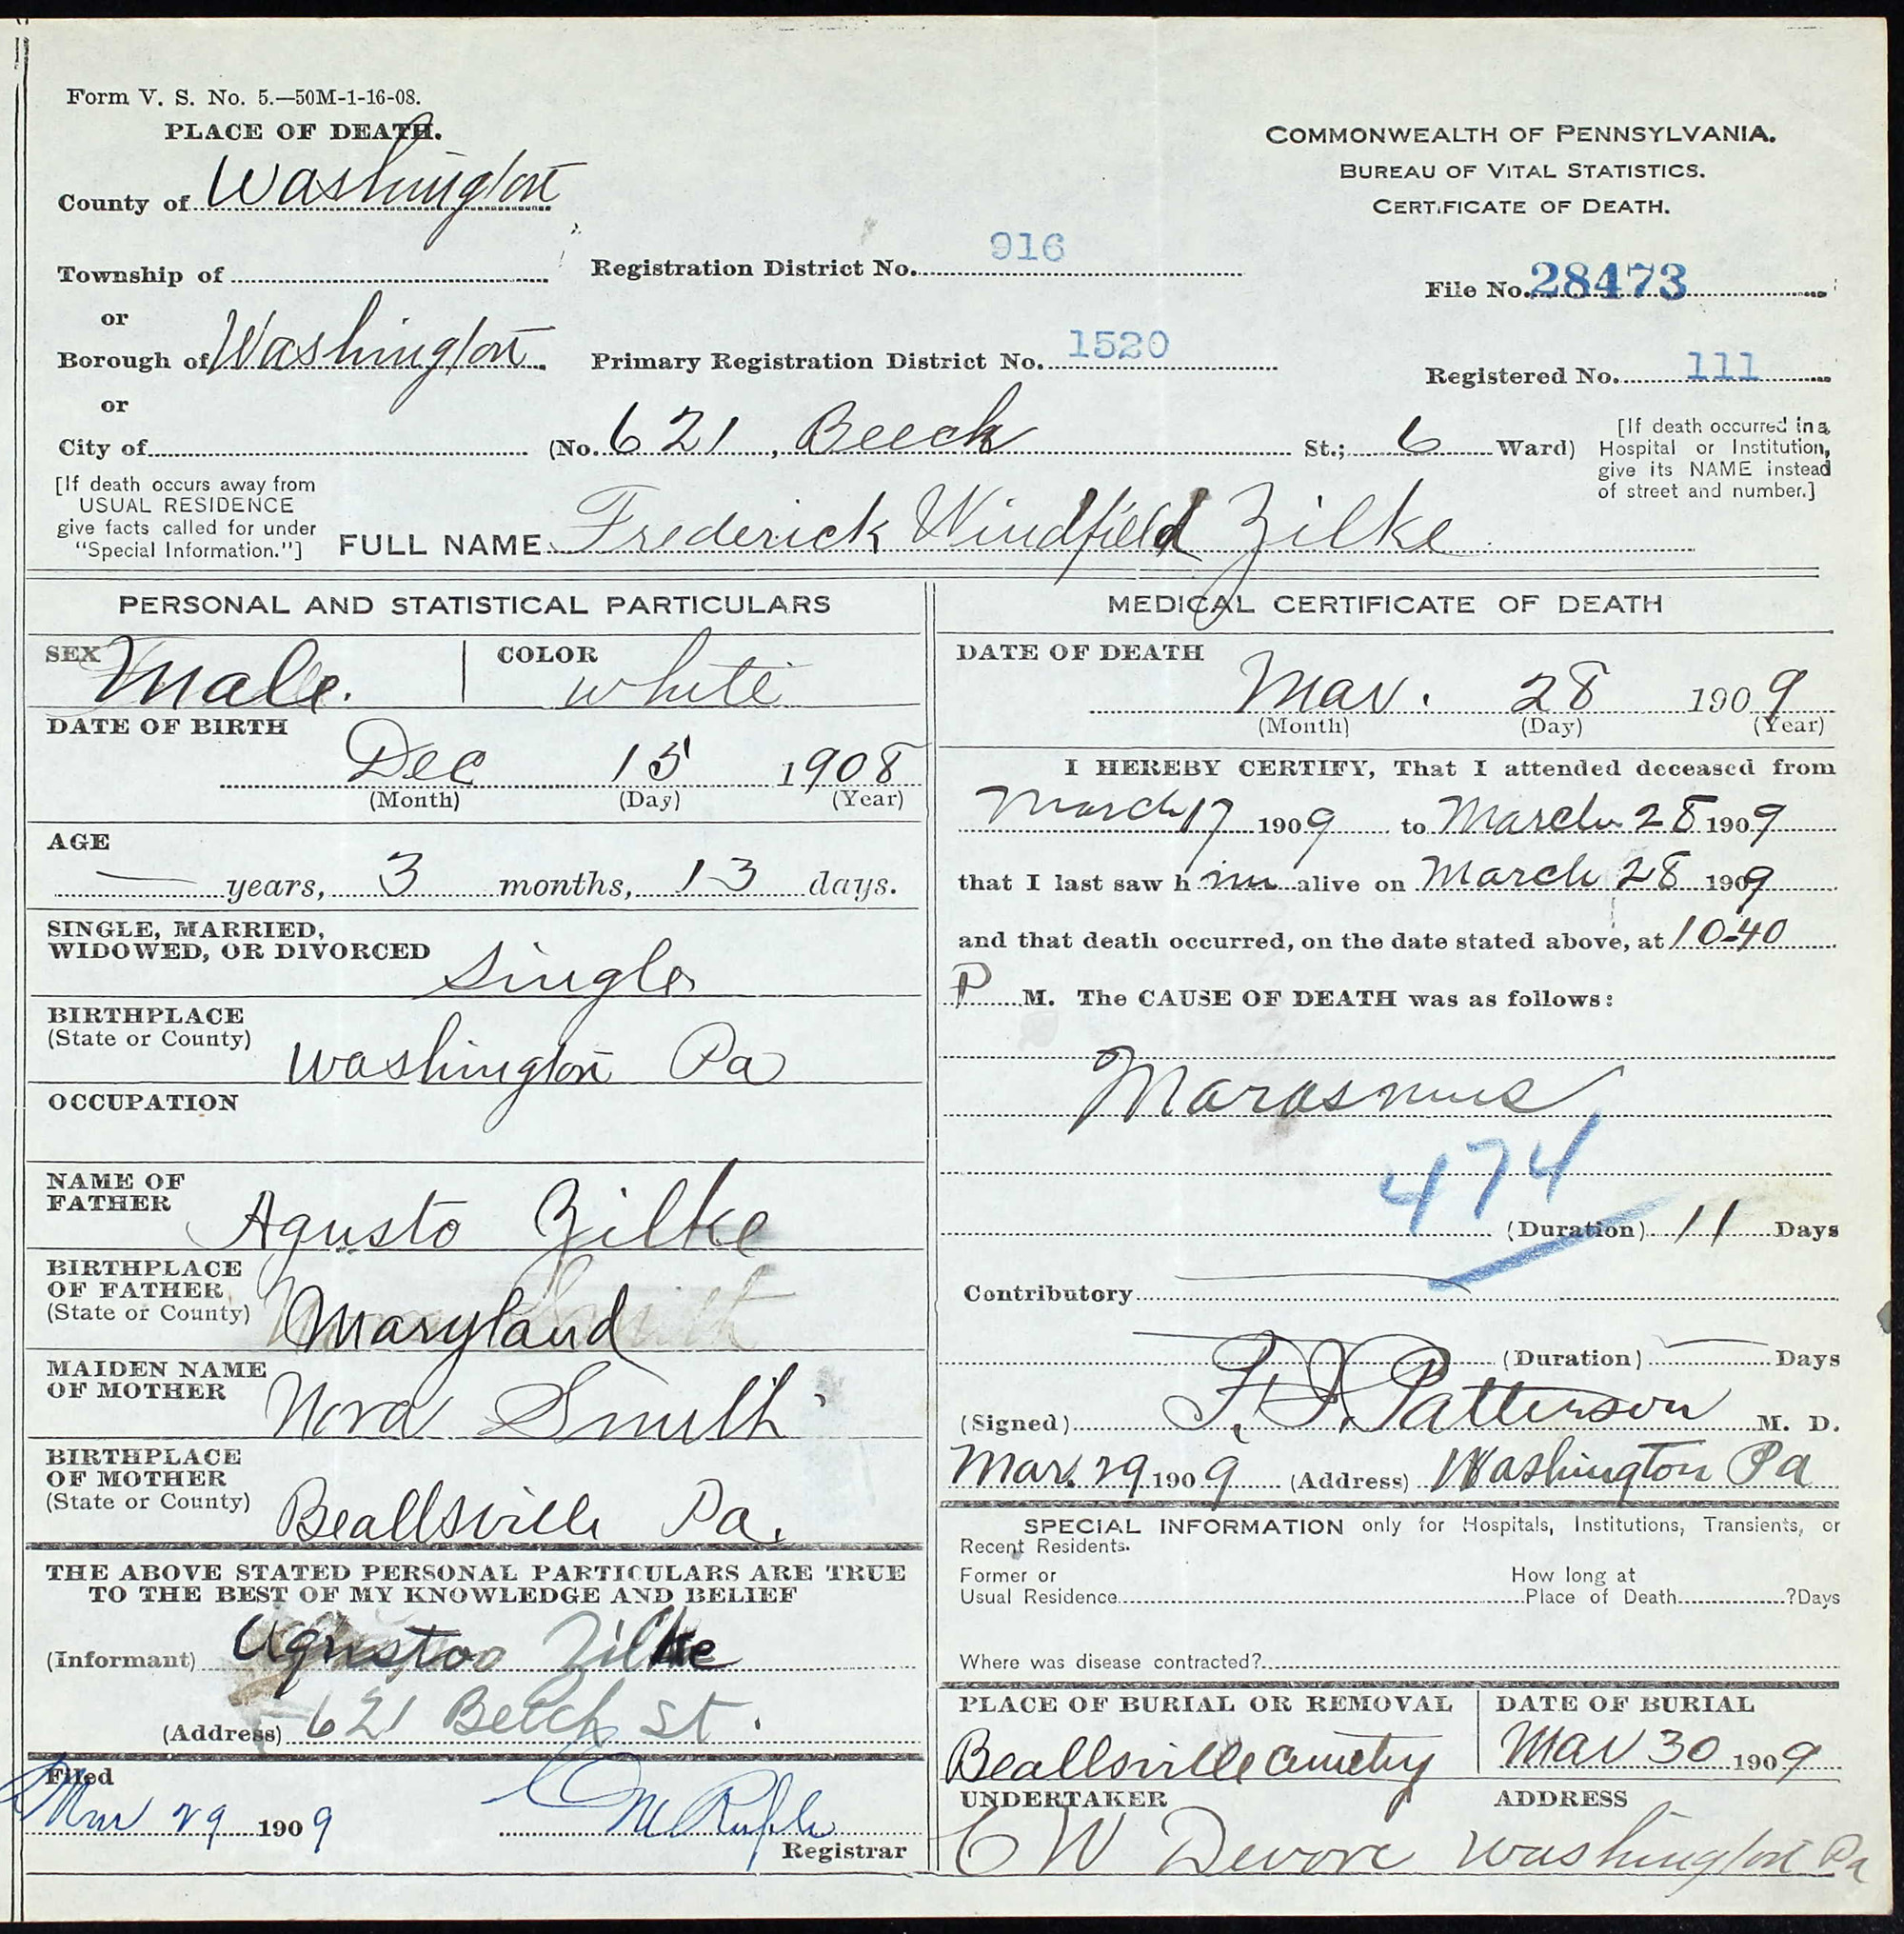 Form V. S. No. 5.—50M-1-16-08.
PLACE OF DEATH.
County of Washington
Township of
or
Borough of Washington
or
City of
[If death occurs away from
USUAL RESIDENCE
give facts called for under
"Special Information."]
COMMONWEALTH OF PENNSYLVANIA.
BUREAU OF VITAL STATISTICS.
CERTIFICATE OF DEATH.
Registration District No. 916
File No. 28473
Primary Registration District No. 1520
Registered No. 111
(No. 621, Beech St.; 6 Ward)
[If death occurred in a
Hospital or Institution,
give its NAME instead
of street and number.]
FULL NAME Frederick Windfield Zilke
PERSONAL AND STATISTICAL PARTICULARS
SEX Male.
COLOR white
DATE OF BIRTH
Dec 15 1908
(Month) (Day) (Year)
AGE
— years, 3 months, 13 days.
SINGLE, MARRIED,
WIDOWED, OR DIVORCED Single
BIRTHPLACE
(State or County) Washington Pa
OCCUPATION
NAME OF
FATHER Agusto Zilke
BIRTHPLACE
OF FATHER
(State or County) Maryland
MAIDEN NAME
OF MOTHER Nora Smith
BIRTHPLACE
OF MOTHER
(State or County) Beallsville Pa.
THE ABOVE STATED PERSONAL PARTICULARS ARE TRUE
TO THE BEST OF MY KNOWLEDGE AND BELIEF
(Informant) Agustoo Zilke
(Address) 621 Beech St.
Filed
Mar 29 1909
Registrar
MEDICAL CERTIFICATE OF DEATH
DATE OF DEATH
Mar. 28 1909
(Month) (Day) (Year)
I HEREBY CERTIFY, That I attended deceased from
March 17 1909 to March 28 1909
that I last saw him alive on March 28 1909
and that death occurred, on the date stated above, at 10-40
P M. The CAUSE OF DEATH was as follows:
Marasmus
474
(Duration) 11 Days
Contributory
(Duration) Days
(Signed) Patterson M. D.
Mar. 29 1909 (Address) Washington Pa
SPECIAL INFORMATION only for Hospitals, Institutions, Transients, or
Recent Residents.
Former or
Usual Residence
How long at
Place of Death ?Days
Where was disease contracted?
PLACE OF BURIAL OR REMOVAL
Beallsville Cemetry
DATE OF BURIAL
Mar 30 1909
UNDERTAKER
C W Devore
ADDRESS
Washington Pa